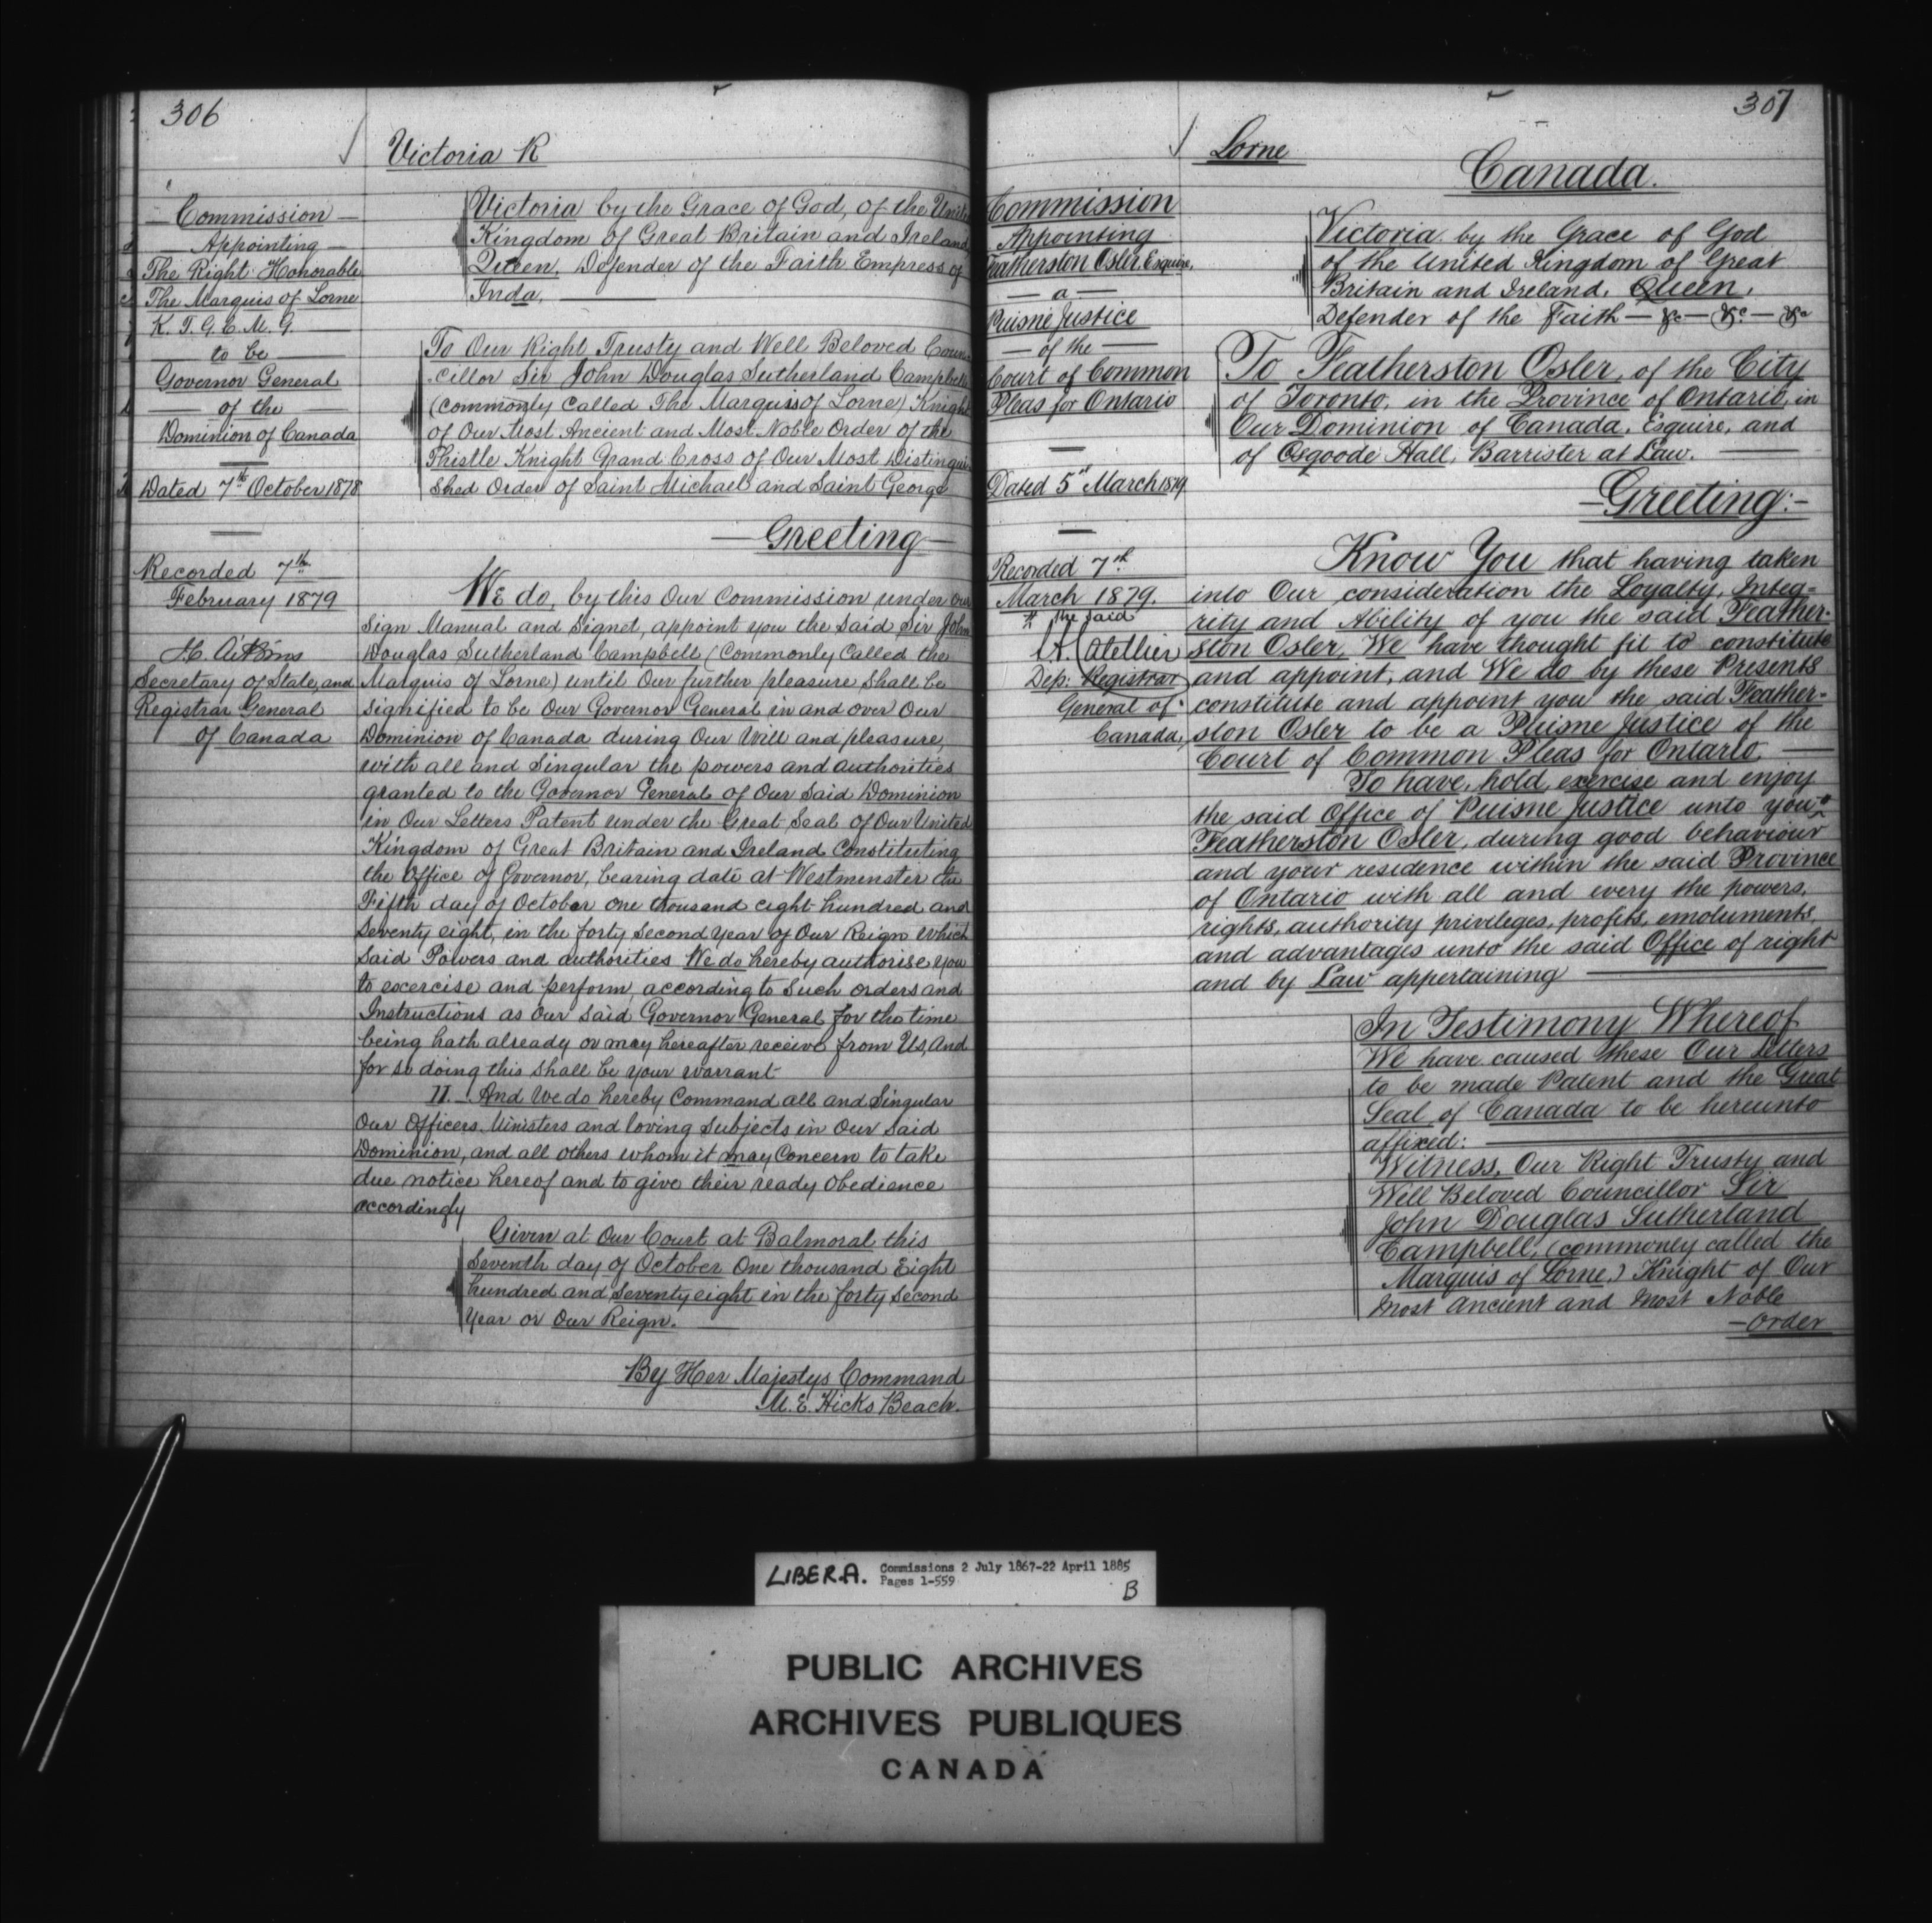 306
Victoria R
Commission
Appointing
The Right Honorable
The Marquis of Lorne
K. T. G. C. M. G.
to be
Governor General
of the
Dominion of Canada
Dated 7th October 1878
Recorded 7th
February 1879
Secretary of State, and
Registrar General
of Canada
Victoria by the Grace of God, of the United
Kingdom of Great Britain and Ireland
Queen, Defender of the Faith Empress of
Inda.
To Our Right Trusty and Well Beloved Coun
cillor Sir John Douglas Sutherland Campbell
(commonly called The Marquis of Lorne) Knight
of Our Most Ancient and Most Noble Order of the
Thistle Knight Grand Cross of Our Most Distingui
shed Order of Saint Michael and Saint George
Greeting
We do, by this Our Commission under Our
Sign Manual and Signet, appoint you the Said Sir John
Douglas Sutherland Campbell (Commonly Called the
Marquis of Lorne) until Our further pleasure shall be
signified to be Our Governor General in and over Our
Dominion of Canada during Our Will and pleasure,
with all and Singular the powers and authorities
granted to the Governor General of Our Said Dominion
in Our Letters Patent under the Great Seal of Our United
Kingdom of Great Britain and Ireland Constituting
the Office of Governor, bearing date at Westminster the
Fifth day of October one thousand eight hundred and
Seventy eight, in the forty Second Year of Our Reign which
Said Powers and authorities We do hereby authorise you
to excercise and perform, according to Such orders and
Instructions as Our Said Governor General for the time
being hath already or may hereafter receive from Us, And
for so doing this shall be your warrant
II. And We do hereby Command all and Singular
Our Officers, Ministers and loving Subjects in Our Said
Dominion, and all others whom it may Concern to take
due notice hereof and to give their ready Obedience
accordingly
Given at Our Court at Balmoral this
Seventh day of October One thousand Eight
hundred and Seventy eight in the forty Second
Year or Our Reign.
By Her Majestys Command
M. E. Hicks Beach.
307
Lorne
Canada.
Commission
Appointing
Featherston Osler, Esquire,
a
Puisne Justice
of the
Court of Common
Pleas for Ontario
Dated 5th March 1879
Recorded 7th
March 1879.
the said
Dep: Registrar
General of
Canada,
Victoria by the Grace of God
of the United Kingdom of Great
Britain and Ireland, Queen,
Defender of the Faith — &c — &c — &c
To Featherston Osler, of the City
of Toronto, in the Province of Ontario, in
Our Dominion of Canada, Esquire, and
of Osgoode Hall, Barrister at Law.
Greeting:—
Know You that having taken
into Our consideration the Loyalty, Integ-
rity and Ability of you the said Feather-
ston Osler, We have thought fit to constitute
and appoint, and We do by these Presents
constitute and appoint you the said Feather-
ston Osler to be a Puisne Justice of the
Court of Common Pleas for Ontario
To have, hold, exercise and enjoy
the said Office of Puisne Justice unto you
Featherston Osler, during good behaviour
and your residence within the said Province
of Ontario with all and every the powers,
rights, authority privileges, profits, emoluments,
and advantages unto the said Office of right
and by Law appertaining
In Testimony Whereof
We have caused these Our Letters
to be made Patent and the Great
Seal of Canada to be hereunto
affixed:
Witness, Our Right Trusty and
Well Beloved Councillor Sir
John Douglas Sutherland
Campbell, (commonly called the
Marquis of Lorne,) Knight of Our
Most Ancient and Most Noble
—Order
LIBER.A. Commissions 2 July 1867-22 April 1885
Pages 1-559
B
PUBLIC ARCHIVES
ARCHIVES PUBLIQUES
CANADA